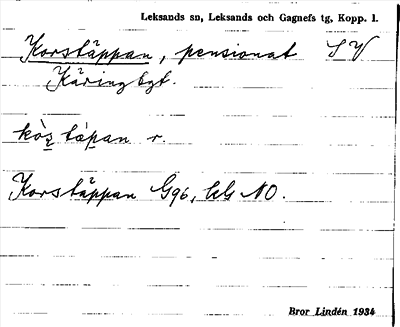 Leksands sn, Leksands och Gagnefs tg, Kopp. l.
Korstäppan, pensionat SV
Käringbgt.
kòs̲ tápan r.
Korstäppan G96, kls NO.
Bror Lindén 1934